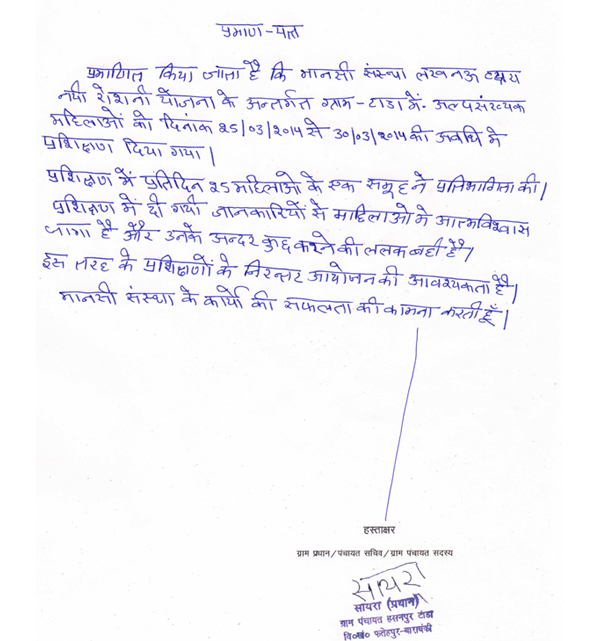 प्रमाण-पत्र
प्रमाणित किया जाता है कि मानसी संस्था लखनऊ द्वारा
नयी रोशनी योजना के अन्तर्गत ग्राम-टाडा में अल्पसंख्यक
महिलाओं को दिनांक 25/03/2014 से 30/03/2014 की अवधि मे
प्रशिक्षण दिया गया।
प्रशिक्षण में प्रतिदिन 25 महिलाओ के एक समूह ने प्रतिभागिता की।
प्रशिक्षण में दी गयी जानकारियों से महिलाओ मे आत्मविश्वास
जागा है और उनके अन्दर कुछ करने की ललक बढी है।
इस तरह के प्रशिक्षणों के निरन्तर आयोजन की आवश्यकता है।
मानसी संस्था के कार्यो की सफलता की कामना करती हूँ।
हस्ताक्षर
ग्राम प्रधान/पंचायत सचिव/ग्राम पंचायत सदस्य
सायरा
सायरा (प्रधान)
ग्राम पंचायत हसनपुर टांडा
वि०ख० फतेहपुर-बाराबंकी